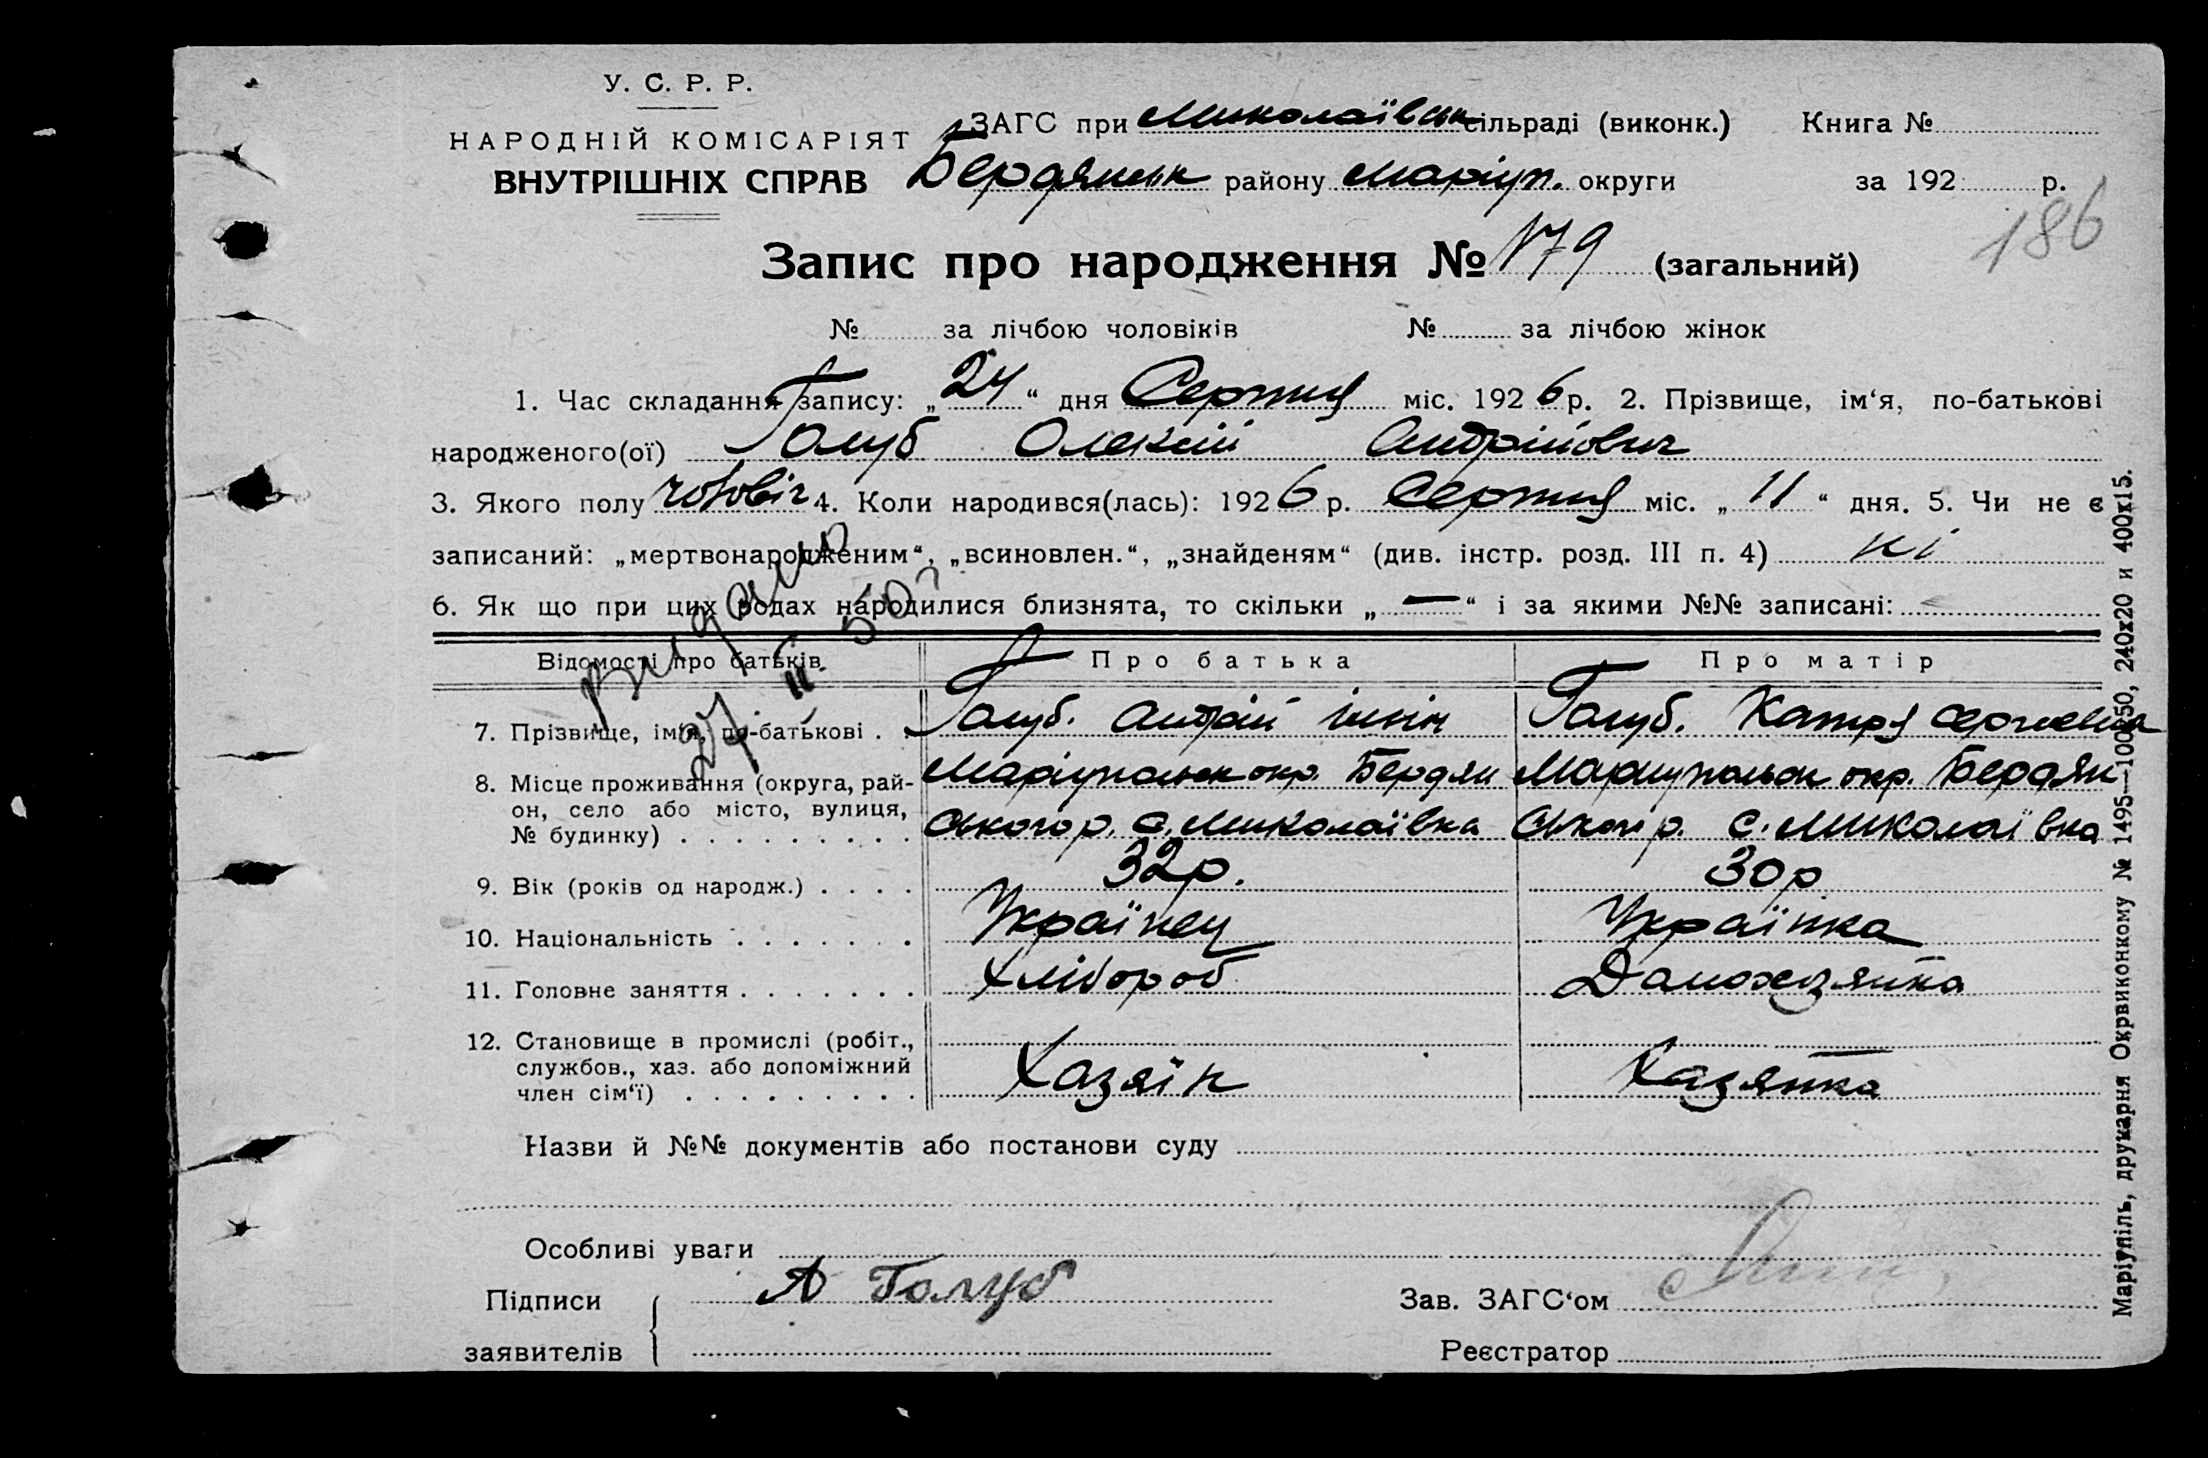 У. С. Р. Р.
НАРОДНІЙ КОМІСАРІЯТ
ВНУТРІШНІХ СПРАВ
ЗАГС при Миколаївськ сільраді (виконк.) Книга №
Бердянськ району Маріуп. округи за 192 р.
186
Запис про народження № 179 (загальний)
№ за лічбою чоловіків № за лічбою жінок
1. Час складання запису: „24“ дня Серпня міс. 1926 р. 2. Прізвище, ім‘я, по-батькові
народженого(ої) Голуб Олексій Андрійович
3. Якого полу чоловіч 4. Коли народився(лась): 1926 р. Серпня міс. „11“ дня. 5. Чи не є
записаний: „мертвонародженим“, „всиновлен.“, „знайденям“ (див. інстр. розд. III п. 4) ні
6. Як що при цих родах народилися близнята, то скільки „—“ і за якими №№ записані:
видано
27 II 50 г
Відомості про батьків. Про батька Про матір
7. Прізвище, ім‘я, по-батькові . . Голуб. Андрій Голуб. Катря
8. Місце проживання (округа, рай-он, село або місто, вулиця, № будинку) . . . . . . . . .
Маріупольськ окр. Бердян Мариупольськ окр. Бердян
ського р. с. Миколаївка ського р. с. Миколаївка
9. Вік (років од народж.) . . . . 32 р. 30 р
10. Національність . . . . . . . Українец Українка
11. Головне заняття . . . . . . . Хлібороб Домохазяйка
12. Становище в промислі (робіт., службов., хаз. або допоміжний член сім‘ї) . . . . . . . . .
Хазяїн Хазяйка
Назви й №№ документів або постанови суду
Особливі уваги
Підписи заявителів А Голуб
Зав. ЗАГС‘ом
Реєстратор
Маріупіль, друкарня Окрвиконкому № 1495—100х50, 240х20 и 400х15.